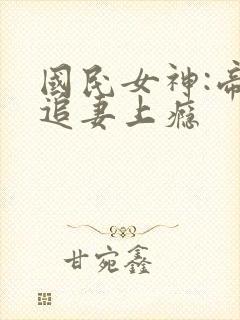 國民女神:帝
追妻上癮
甘宛鑫